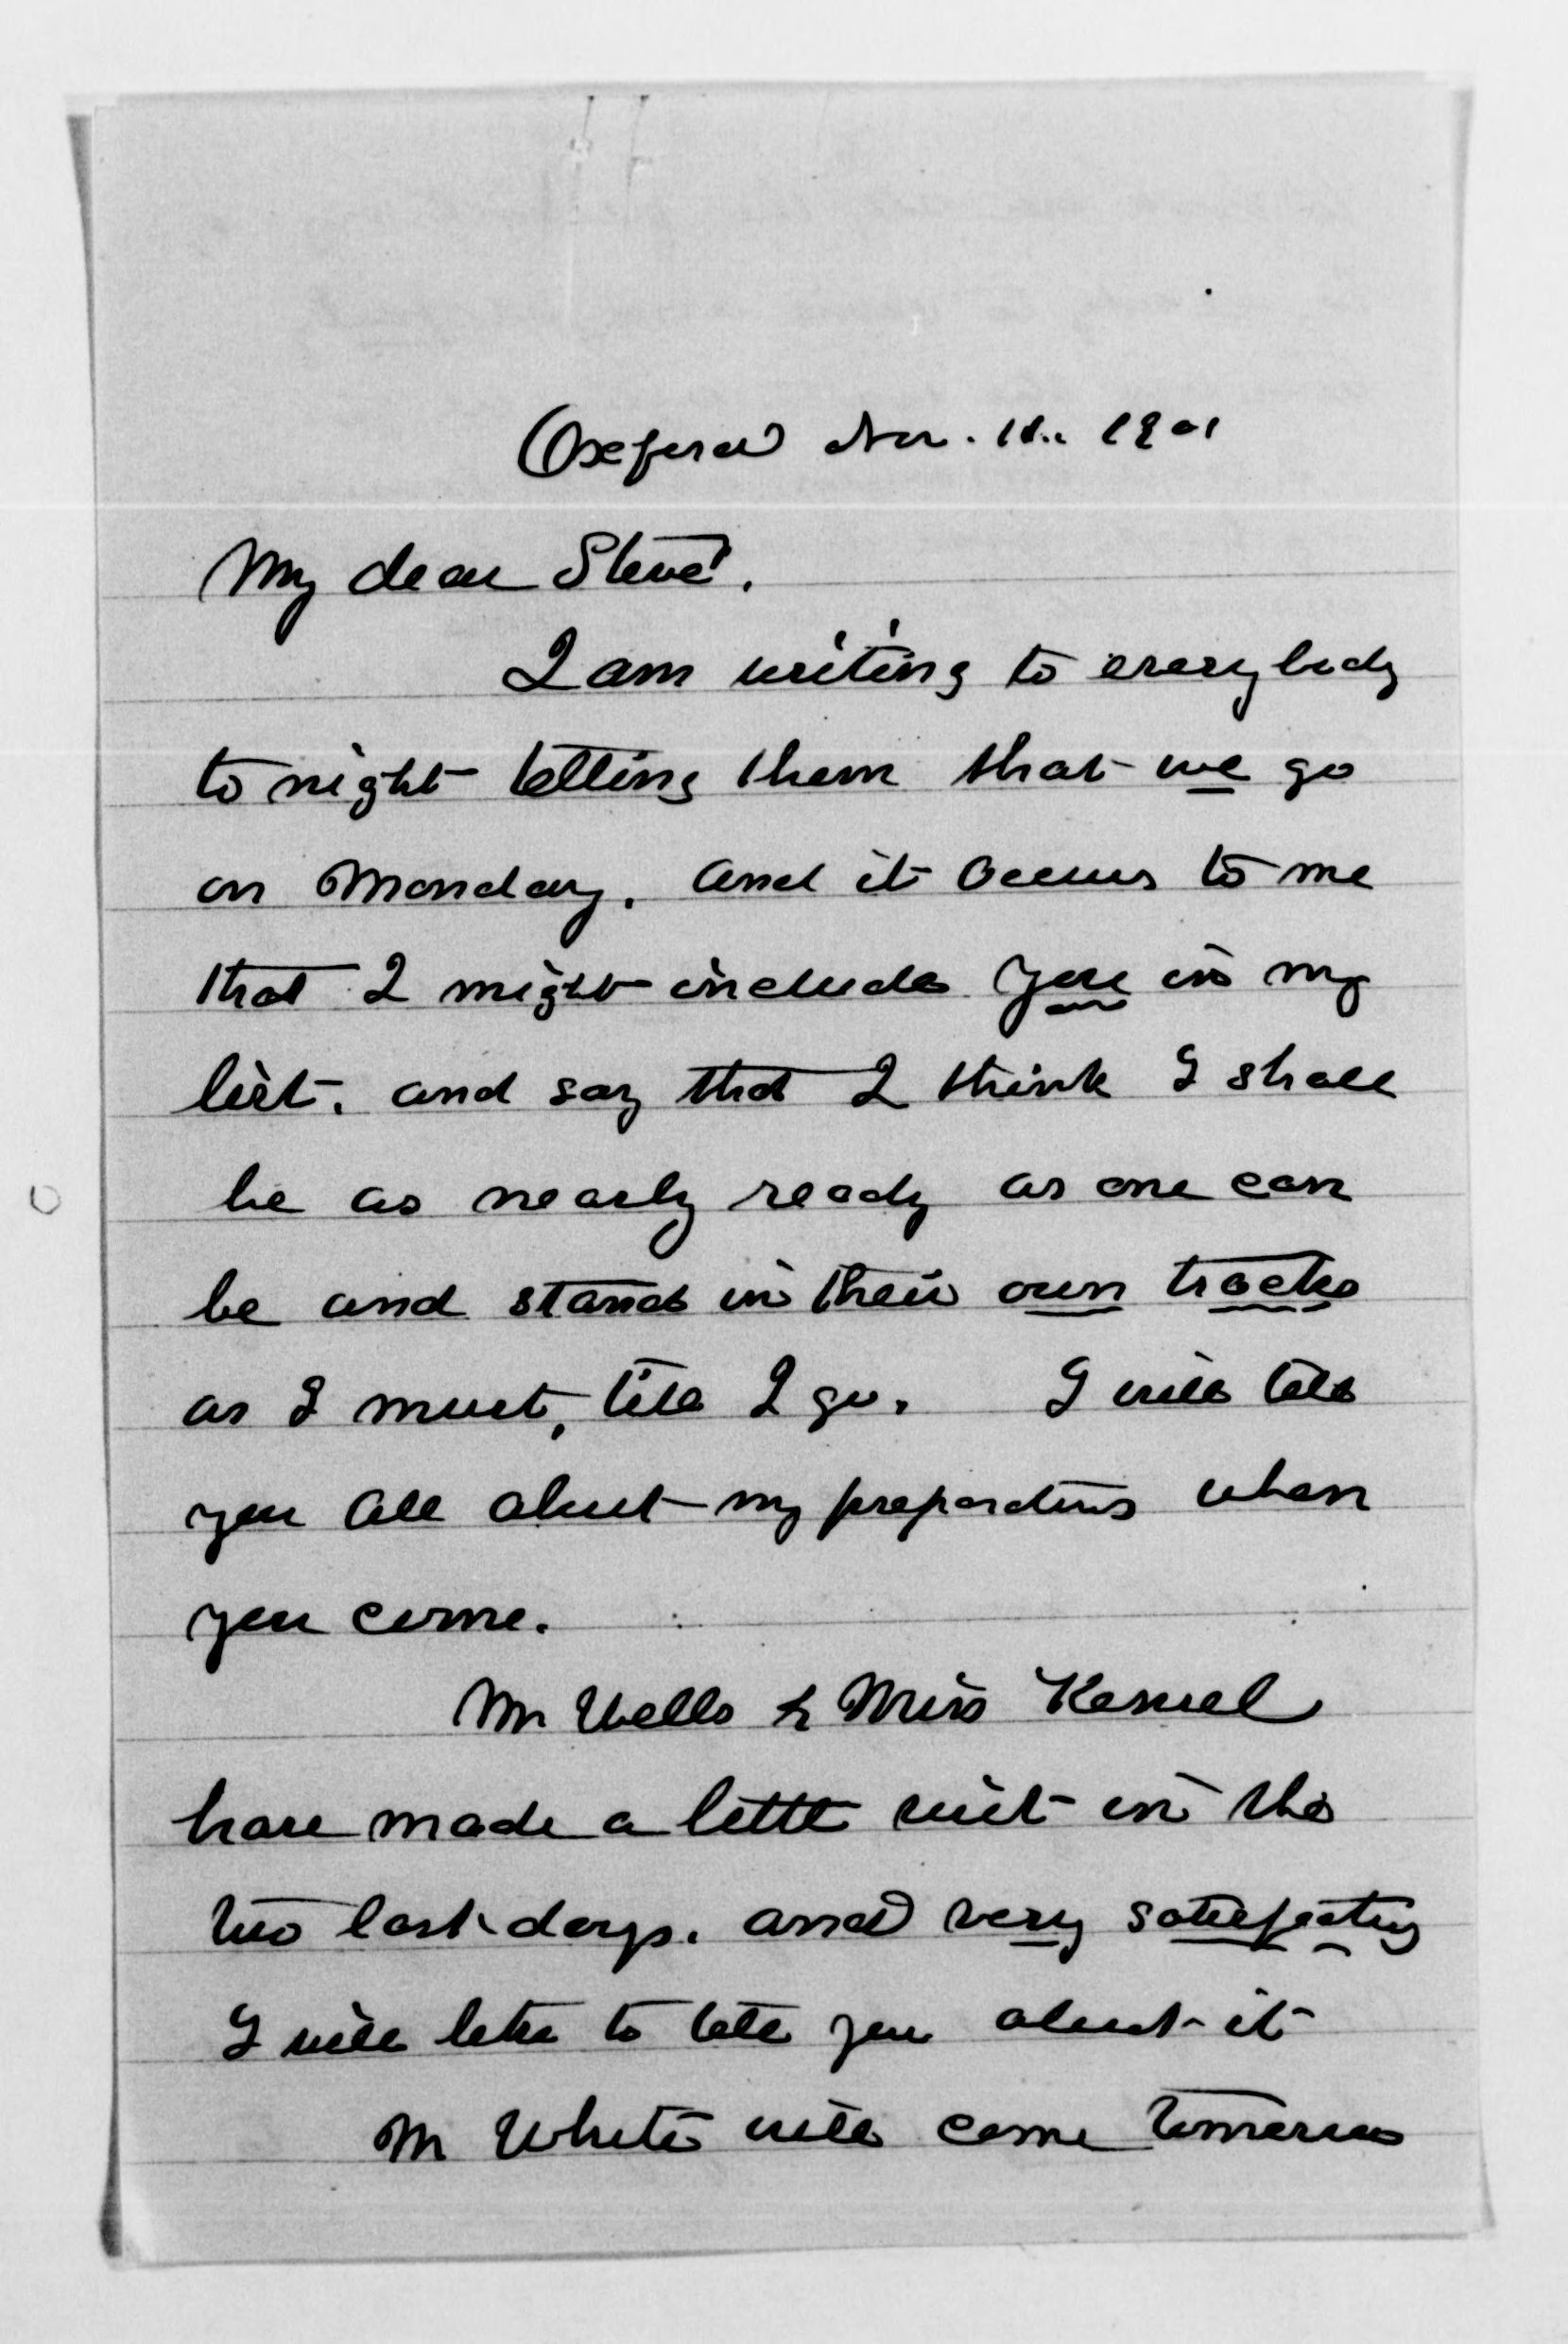 Oxford Nov. 1901
My dear Steve.
I am writing to everybody
to night telling them that we go
on Monday. and it occurs to me
that I might include you in my
list. and say that I think I shall
be as nearly ready as one can
be and stand in their own tracks
as I must, till I go. I will tell
you all about my preparations when
you come.
Mr Wells & Miss
have made a little visit in the
two last days. and very satisfactory
I will let to tell you about it
Mr White will come tomorrow